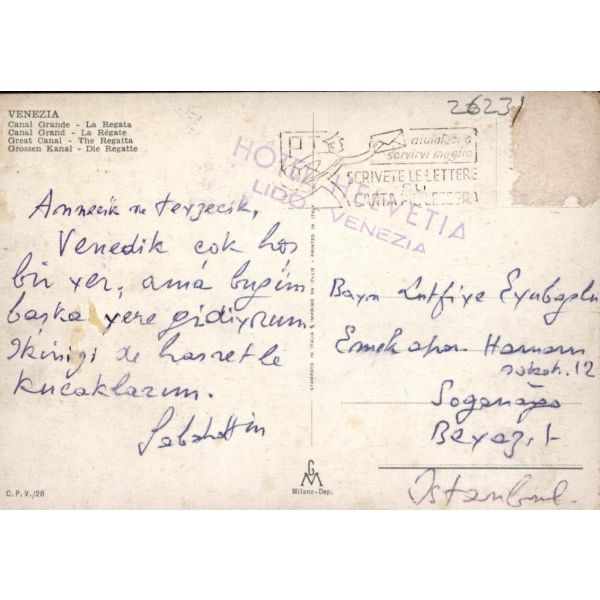 26231
VENEZIA
Canal Grande - La Regata
Canal Grand - La Régate
Great Canal - The Regatta
Grossen Kanal - Die Regatte
PT
aiutateci a
servirvi meglio
SCRIVETE LE LETTERE
SU
CARTA
HÔTEL HELVETIA
LIDO - VENEZIA
Annecik ve teyzecik,
Venedik çok hoş
bir yer, ama bugün
başka yere gidiyorum
İkinizi de hasretle
kucaklarım.
Sabahattin
STAMPATO IN ITALIA - IMPRIMÉ EN ITALIE - PRINTED IN ITALY
Bayan Lutfiye Eyuboglu
Emekapan Hamam
sokak. 12
Soganağa
Beyazıt
Istanbul.
C.P.V./28
GM
Milano-Dep.